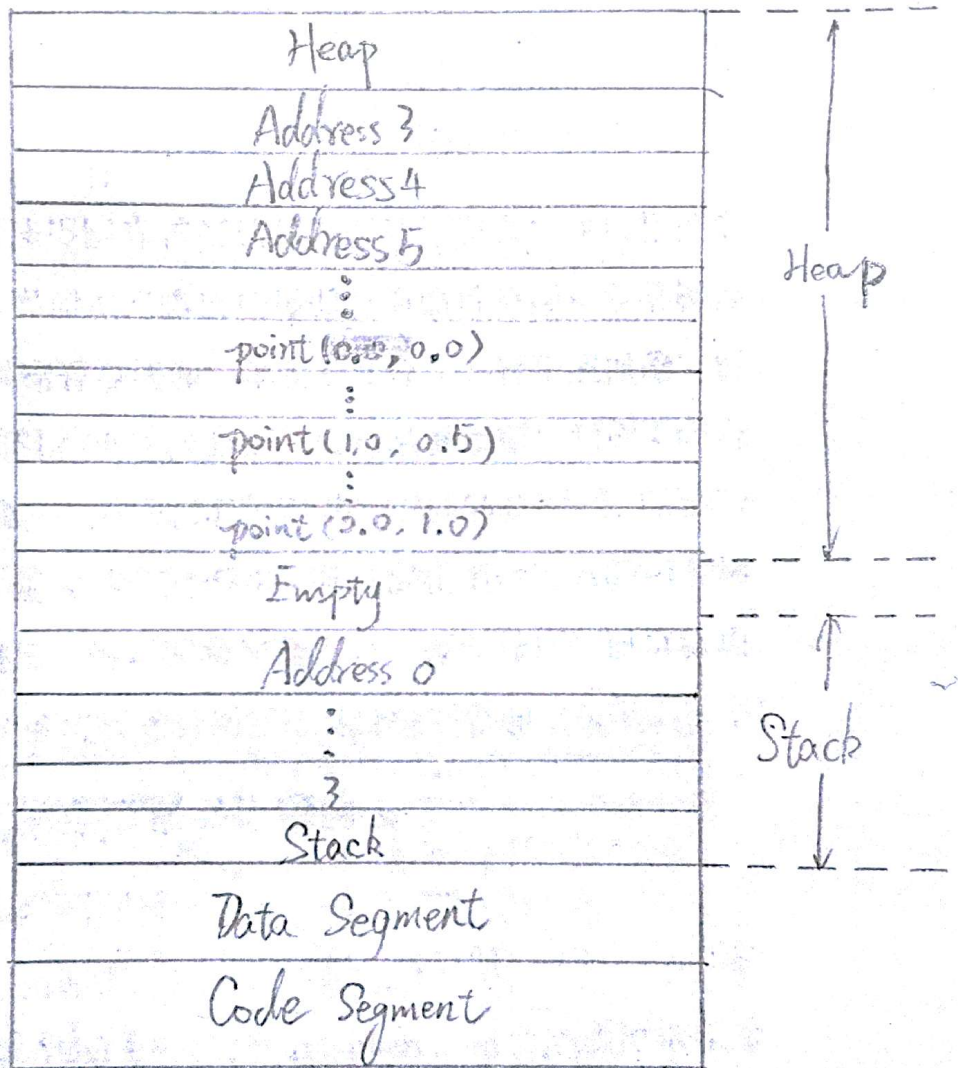 Heap
Address 3
Address 4
Address 5
Heap
point (0.0, 0.0)
point (1.0, 0.5)
point (2.0, 1.0)
Empty
Address 0
Stack
3
Stack
Data Segment
Code Segment